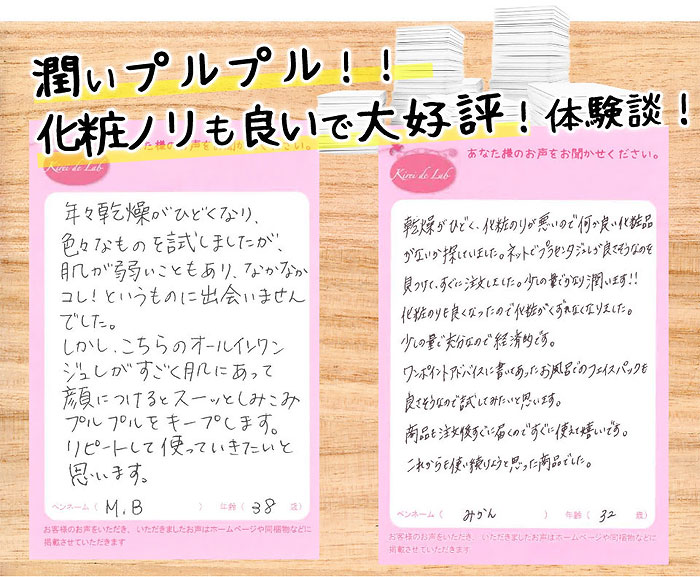 潤いプルプル！！
化粧ノリも良いで大好評！体験談！
な た様のお声をお聞かせください。
Kirei de Lab
年々乾燥がひどくなり、
色々なものを試しましたが、
肌が弱いこともあり、なかなか
コレ！というものに出会いません
でした。
しかし、こちらのオールインワン
ジュレがすごく肌にあって
顔につけるとスーッとしみこみ
プルプルをキープします。
リピートして使っていきたいと
思います。
ペンネーム（ M.B ） 年齢（ 38 歳）
お客様のお声をいただき、いただきましたお声はホームページや同梱物などに
掲載させていただきます
あなた様のお声をお聞かせください。
Kirei de Lab
乾燥がひどく、化粧のりが悪いので何か良い化粧品
がないか探していました。ネットでプラセンタジュレが良さそうなのを
見つけて、すぐに注文しました。少しの量でかなり潤います!!
化粧のりも良くなったので化粧がくずれなくなりました。
少しの量で充分なので経済的です。
ワンポイントアドバイスに書いてあったお風呂でのフェイスパックも
良さそうなので試してみたいと思います。
商品も注文後すぐに届くのですぐに使えて嬉しいです。
これからも使い続けようと思った商品でした。
ペンネーム（ みかん ） 年齢（ 32 歳）
お客様のお声をいただき、いただきましたお声はホームページや同梱物などに
掲載させていただきます